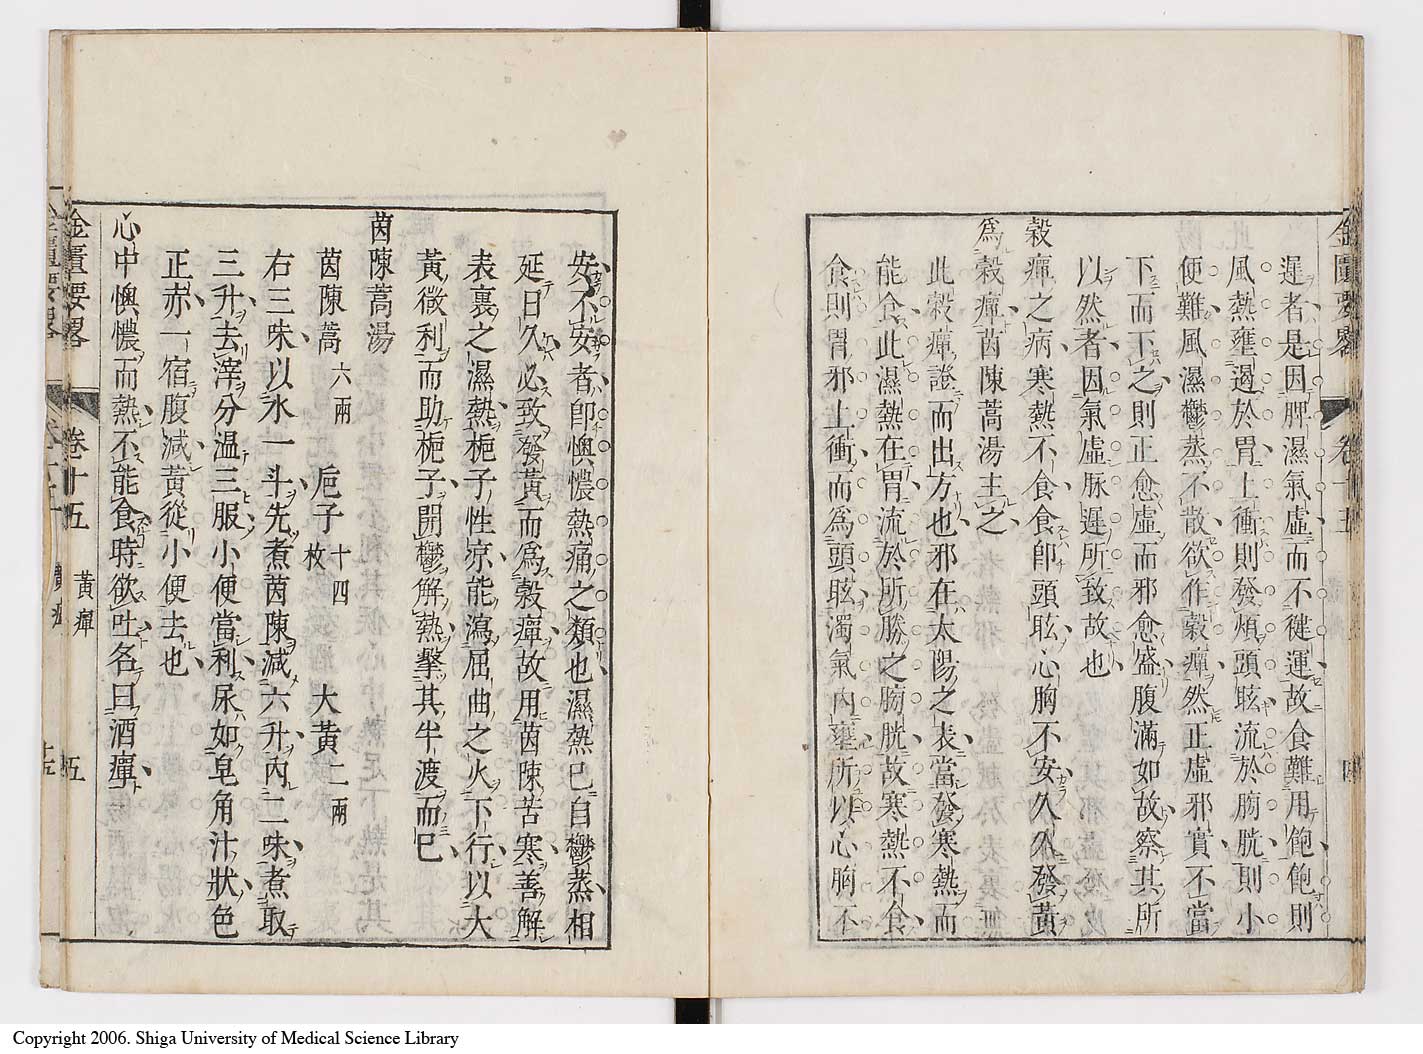 金匱要畧 卷十五 四
遲者是因脾濕氣虛而不健運故食難用飽飽則
風熱壅遏於胃上衝則發煩頭眩流於膀胱則小
便難風濕鬱蒸不散欲作穀癉然正虛邪實不當
下而下之則正愈虛而邪愈盛腹滿如故察其所
以然者因氣虛脉遲所致故也
穀癉之病寒熱不食食卽頭眩心胸不安久久發黃
爲穀癉茵陳蒿湯主之
此穀癉證而出方也邪在太陽之表當發寒熱而
能食此濕熱在胃流於所勝之膀胱故寒熱不食
食則胃邪上衝而爲頭眩濁氣內壅所以心胸不
安不安者卽懊憹熱痛之類也濕熱已自鬱蒸相
延日久必致發黃而爲穀癉故用茵陳苦寒善解
表裏之濕熱梔子性凉能瀉屈曲之火下行以大
黃微利而助梔子開鬱解熱擊其半渡而已
茵陳蒿湯
茵陳蒿六兩 巵子十四枚 大黃二兩
右三味以水一斗先煮茵陳減六升內二味煮取
三升去滓分温三服小便當利尿如皂角汁狀色
正赤一宿腹減黃從小便去也
心中懊憹而熱不能食時欲吐名曰酒癉
金匱要畧 卷十五 黃癉 五